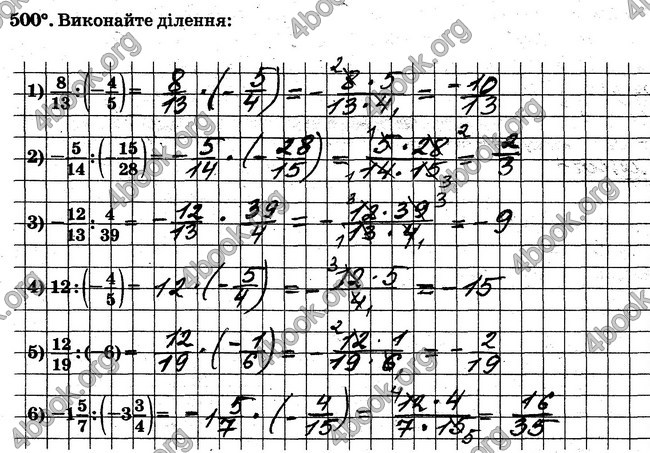 500°. Виконайте ділення:
1) 8/13 : (-4/5) = 8/13 · (-5/4) = - 8 · 5 / 13 · 4 = -10/13
2) -5/14 : (-15/28) = -5/14 · (-28/15) = 5 · 28 / 14 · 15 = 2/3
3) -12/13 : 4/39 = -12/13 · 39/4 = - 12 · 39 / 13 · 4 = -9
4) 12 : (-4/5) = 12 · (-5/4) = - 12 · 5 / 4 = -15
5) 12/19 : (-6) = 12/19 · (-1/6) = - 12 · 1 / 19 · 6 = - 2/19
6) -1 5/7 : (-3 3/4) = -1 5/7 · (-4/15) = 12 · 4 / 7 · 15 = 16/35
4book.org